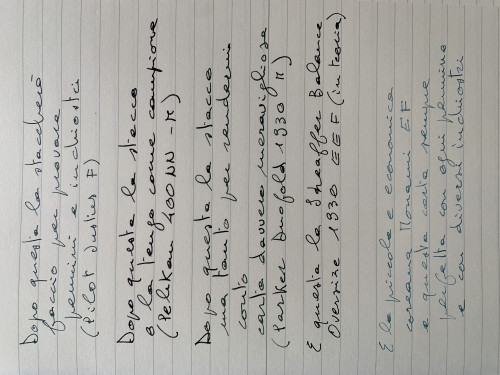 Dopo questa la staccherò
faccio per provare
pennini e inchiostri
(Pilot Justus F)
Dopo questa la stacco
o la tengo come campione
(Pelikan 400 NN - M)
Dopo questa la stacco
ma tanto per rendermi
conto
carta davvero meravigliosa
(Parker Duofold 1930 M)
E questa la Sheaffer Balance
Oversize 1930 EEF (in teoria)
E la piccola e economica
coreana Monami EF
e questa carta sempre
perfetta con ogni pennino
e con diversi inchiostri